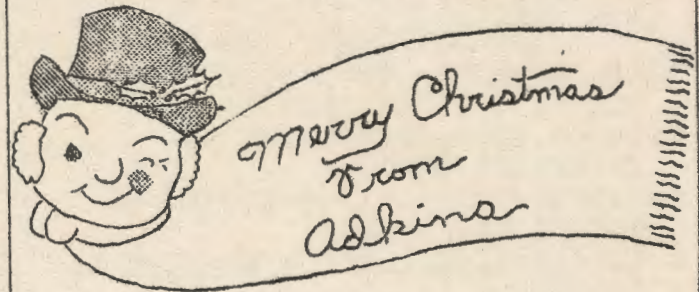 Merry Christmas
From
Adkins